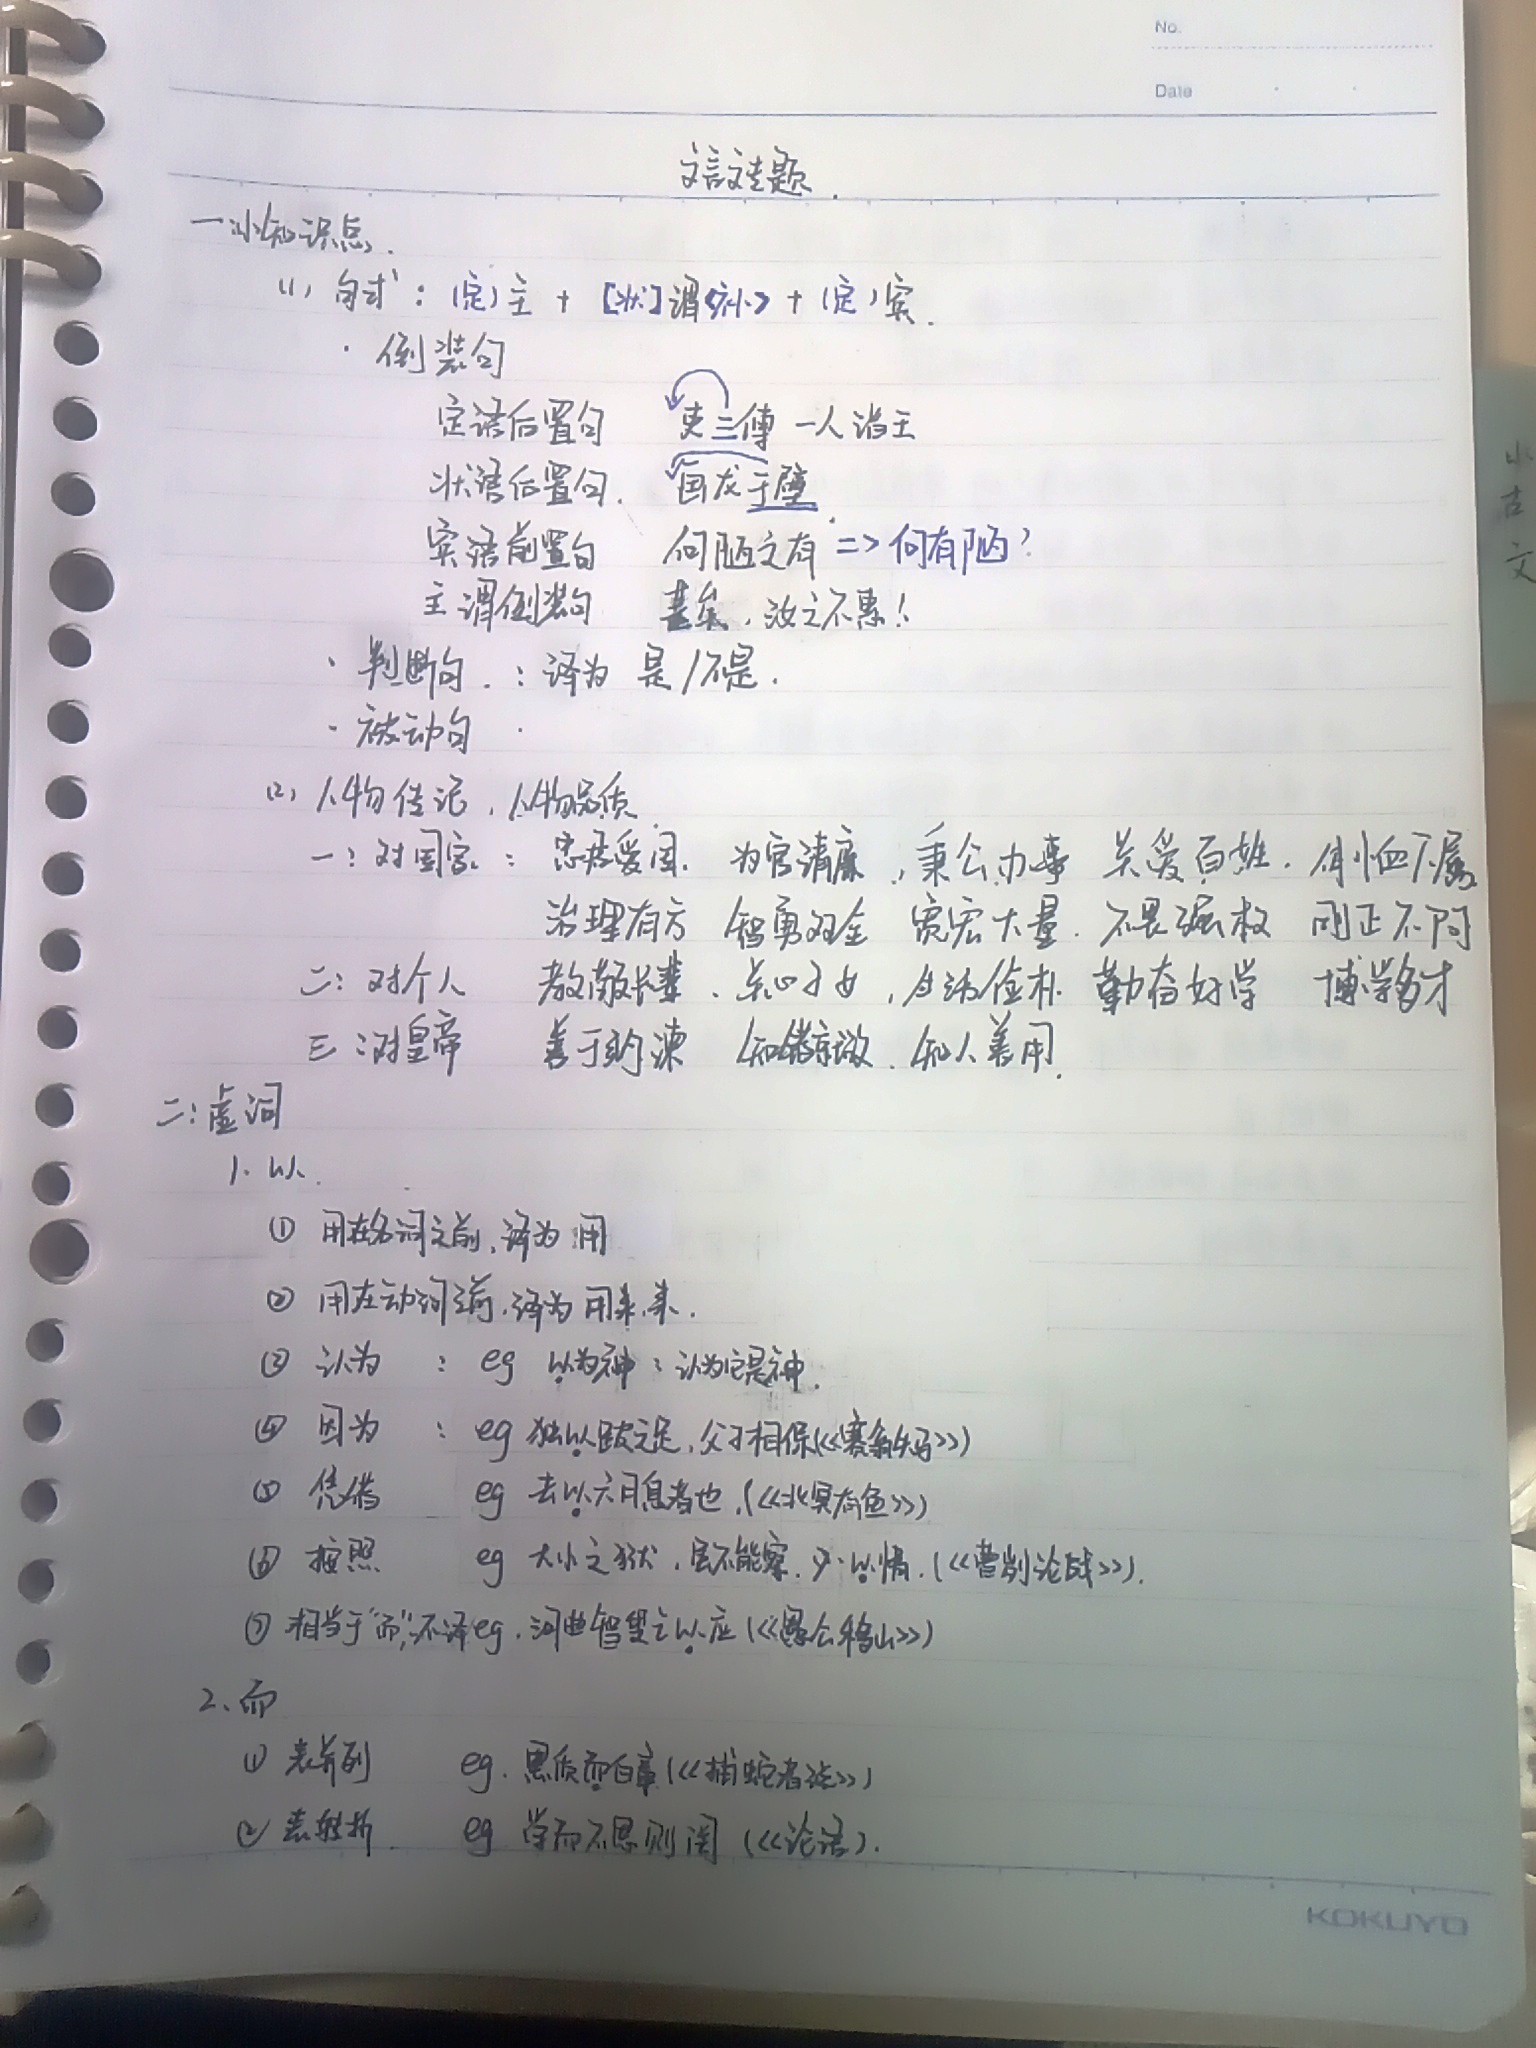 No.
Date
文言文专题.
一.小知识点.
(1) 句式:(定)主 + [状]谓<补> + (定)宾.
· 倒装句
定语后置句 吏三傅 一人诣王
状语后置句. 画龙于壁.
宾语前置句 何陋之有 => 何有陋?
主谓倒装句 甚矣,汝之不惠!
· 判断句.:译为 是/不是.
· 被动句 ·
(2) 人物传记,人物品质.
一:对国家: 忠君爱国. 为官清廉,秉公办事 关爱百姓. 体恤下属
治理有方 智勇双全 宽宏大量. 不畏强权 刚正不阿
二:对个人 孝敬长辈、关心子女,生活俭朴 勤奋好学 博学多才
三:对皇帝 善于纳谏 知错就改. 知人善用.
二:虚词
1. 以.
① 用在名词之前,译为 用
② 用在动词之前,译为 用来,来.
③ 认为 : eg 以为神:认为它是神.
④ 因为 : eg 独以跛之足,父子相保(<<塞翁失马>>)
⑤ 凭借 eg 去以六月息者也,(<<北冥有鱼>>)
⑥ 按照 eg 大小之狱,虽不能察,必以情,(<<曹刿论战>>).
⑦ 相当于"而",不译eg. 河曲智叟之以应(<<愚公移山>>)
2. 而
① 表并列 eg. 黑质而白章(<<捕蛇者说>>)
② 表转折. eg 学而不思则罔 (<<论语).
KOKUYO
小
古
文